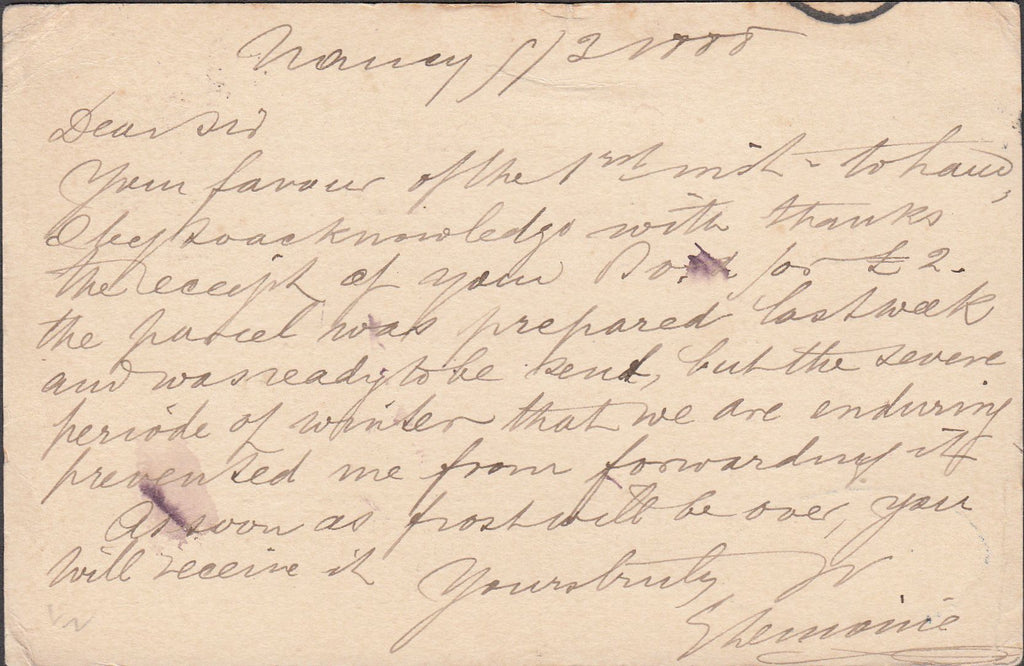 Nancy 5/2 1888
Dear Sir
Your favour of the 1rst inst - to hand,
I beg to acknowledge with thanks
the receipt of your for £2.
the parcel was prepared last week
and was ready to be send, but the severe
periode of winter that we are enduring
prevented me from forwarding it
As soon as frost will be over, you
will receive it
Yours truly
Lemoine